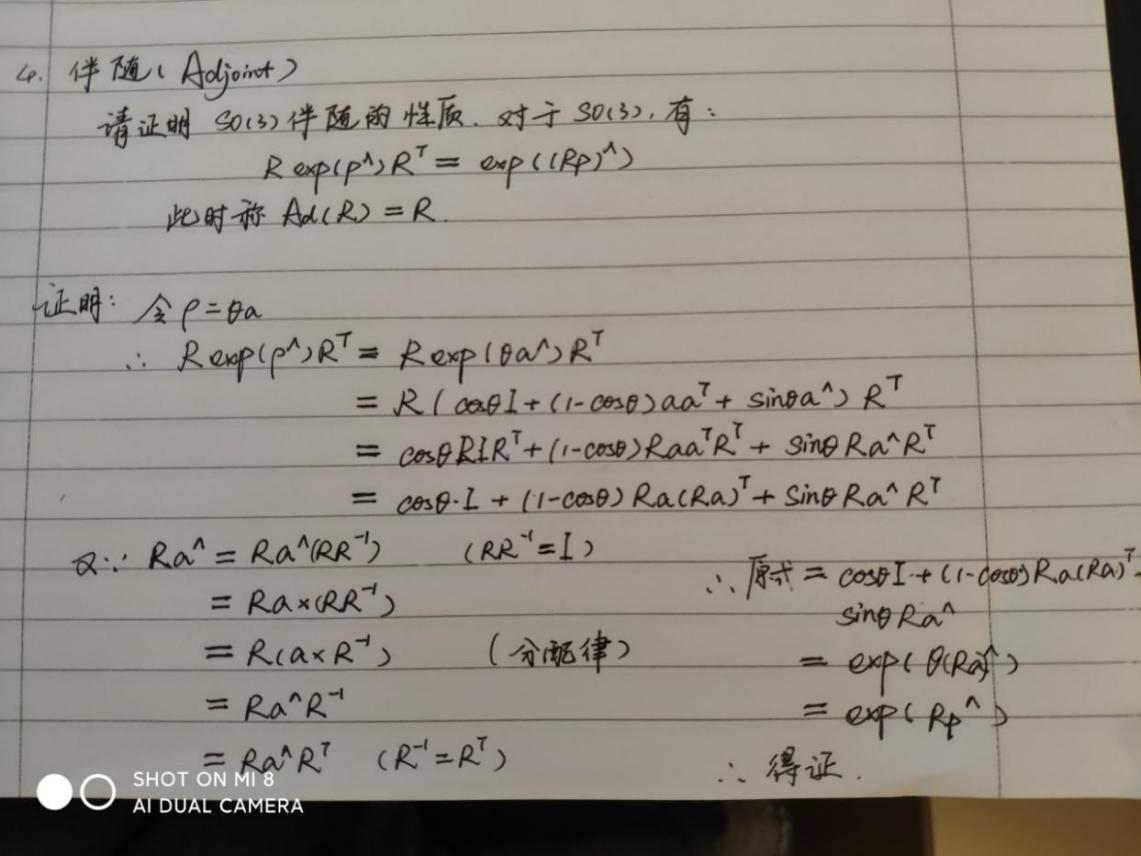 4. 伴随(Adjoint)
请证明 SO(3)伴随的性质. 对于SO(3), 有:
R exp(p^)Rᵀ = exp((Rp)^)
此时称 Ad(R) = R.
证明: 令 ρ = θa
∴ R exp(ρ^)Rᵀ = R exp(θa^)Rᵀ
= R(cosθI + (1-cosθ)aaᵀ + sinθa^)Rᵀ
= cosθRIRᵀ + (1-cosθ)RaaᵀRᵀ + sinθRa^Rᵀ
= cosθ·I + (1-cosθ)Ra(Ra)ᵀ + sinθRa^Rᵀ
又∵ Ra^ = Ra^(RR⁻¹) (RR⁻¹=I)
= Ra×(RR⁻¹)
= R(a×R⁻¹) (分配律)
= Ra^R⁻¹
= Ra^Rᵀ (R⁻¹=Rᵀ)
∴ 原式 = cosθI + (1-cosθ)Ra(Ra)ᵀ+
sinθRa^
= exp(θ(Ra)^)
= exp(Rp^)
∴ 得证.
SHOT ON MI 8
AI DUAL CAMERA